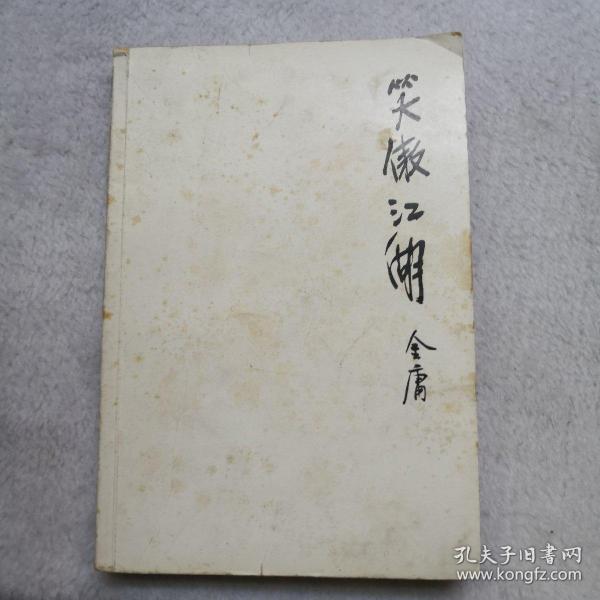 笑傲江湖
金庸
孔夫子旧書网
www.kongfz.com